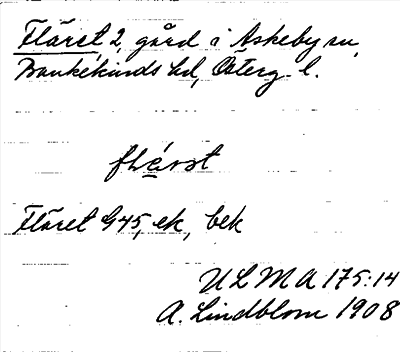 Fläret 2, gård i Askeby sn,
Bankekinds hd, Österg. l.
Fläret G45, ek, bek
ULMA 175:14
A. Lindblom 1908